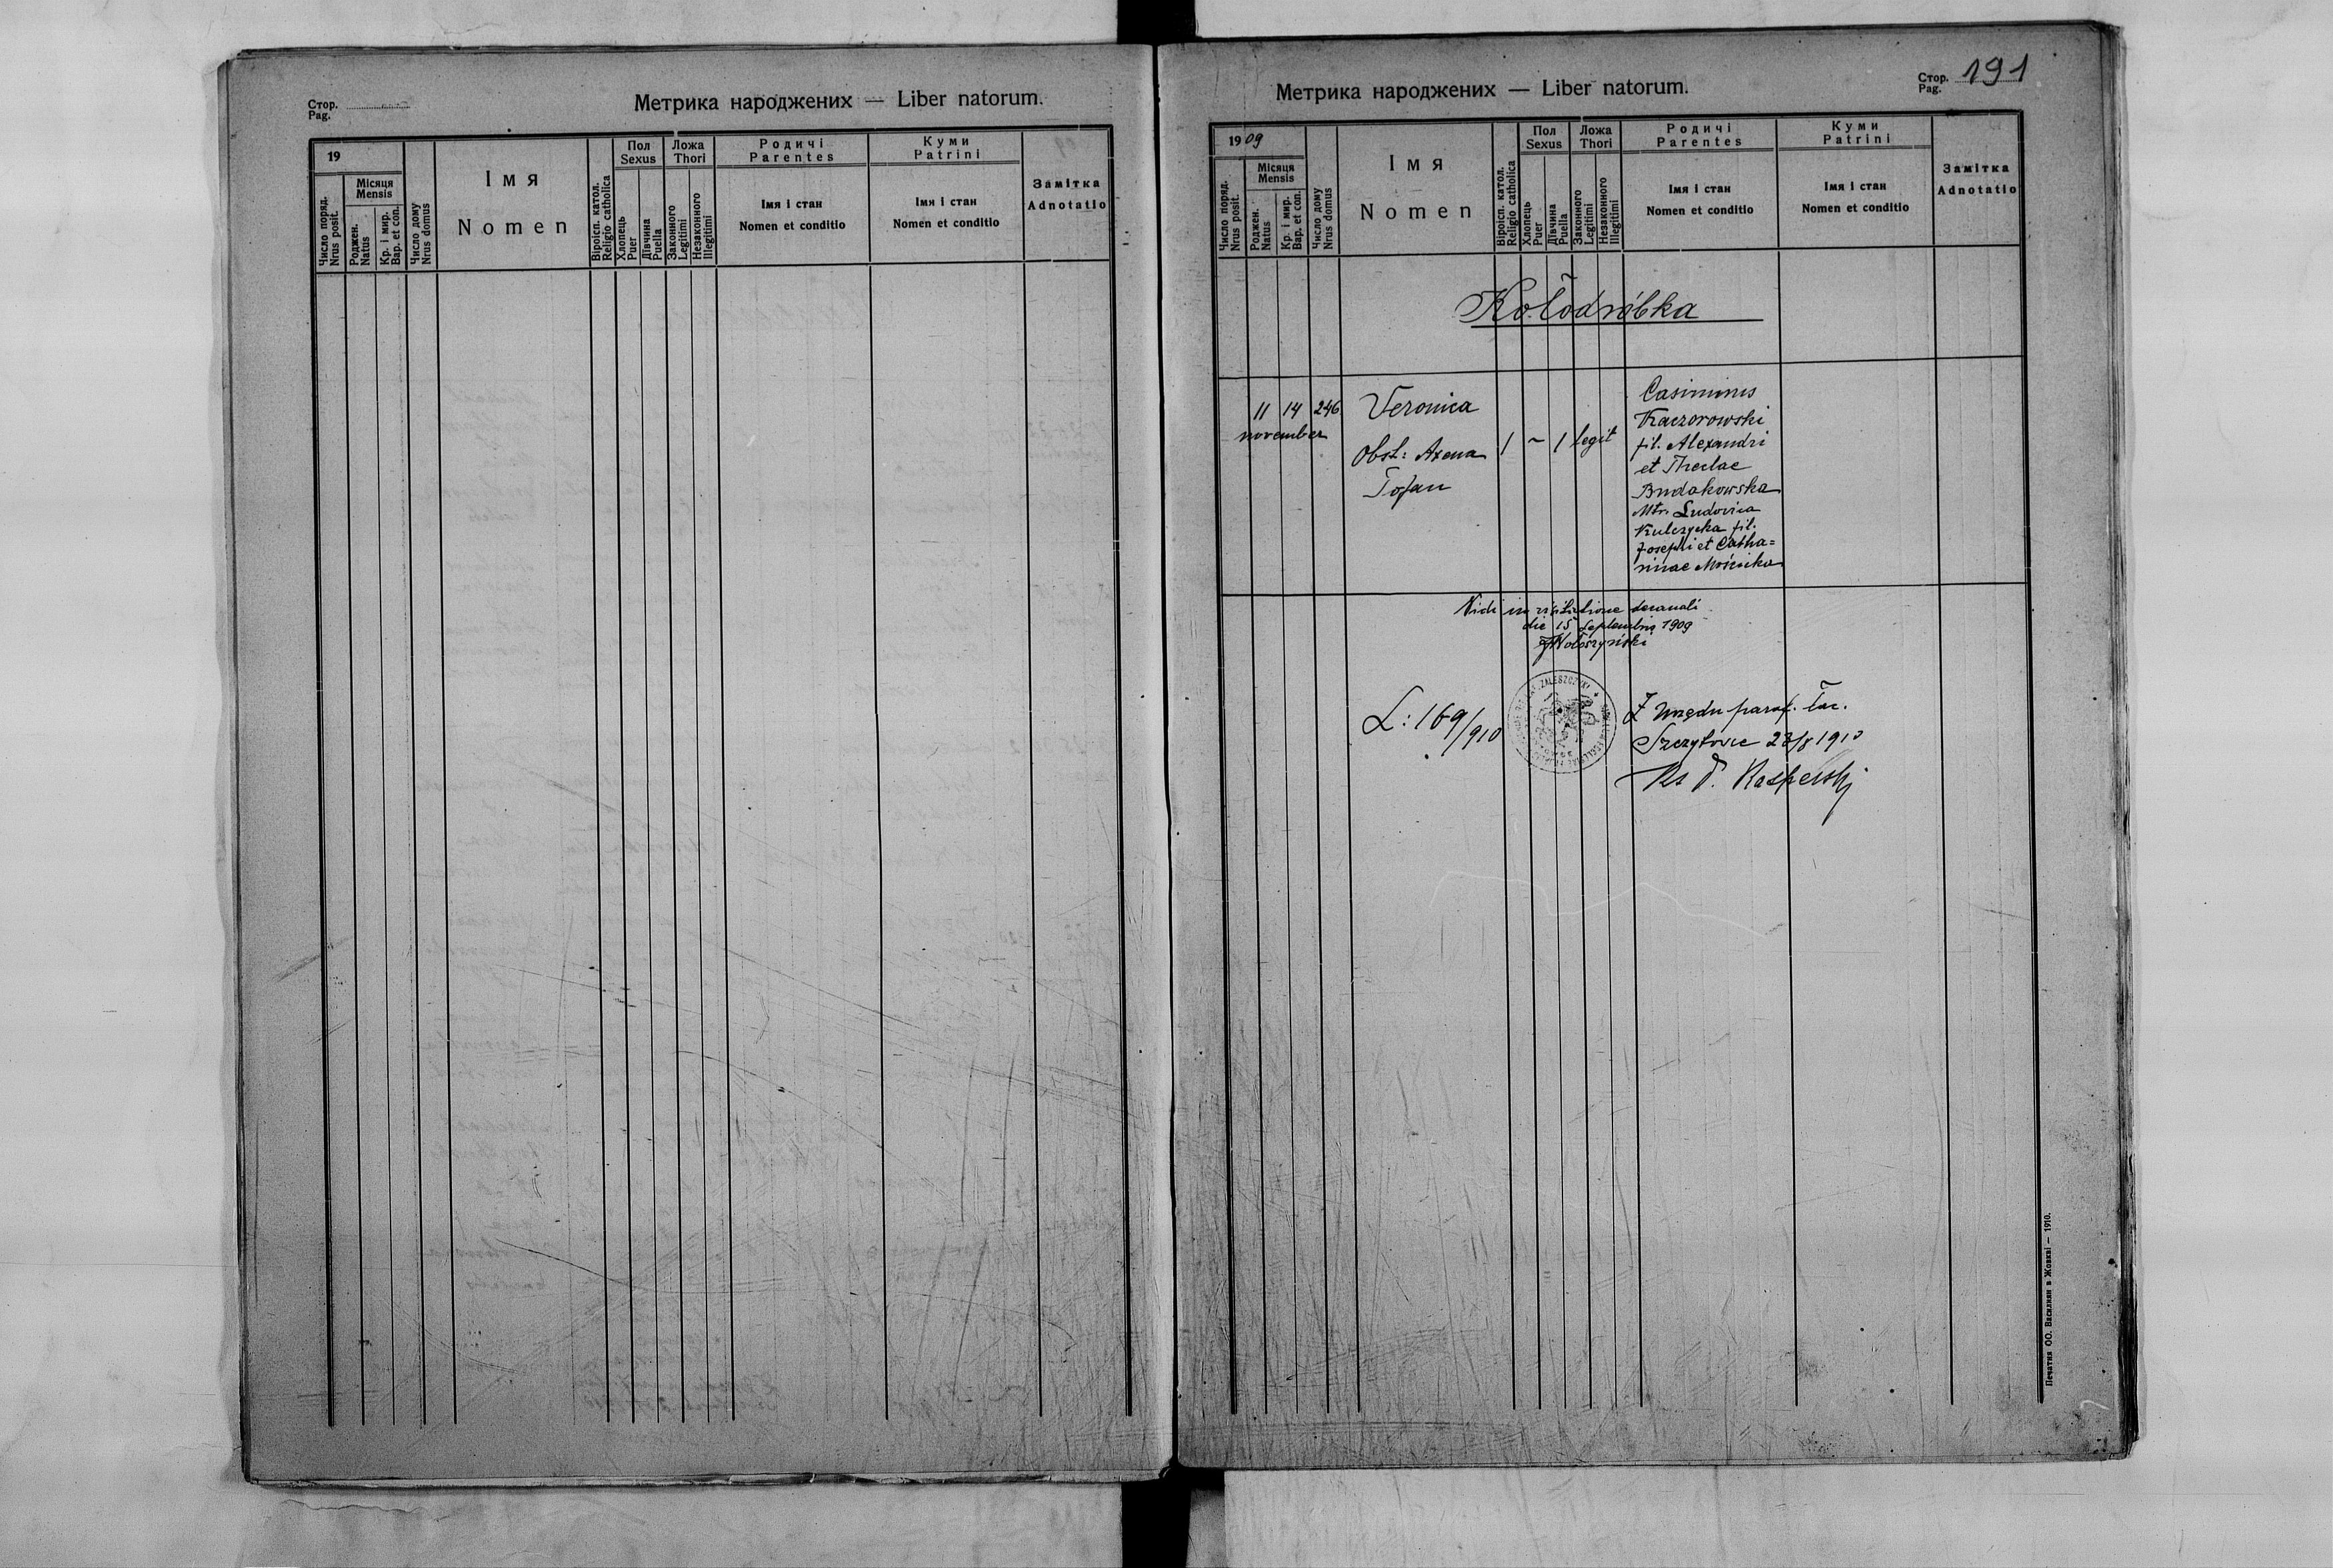 Стор.
Pag.
Метрика народжених — Liber natorum.
19
Число поряд.
Nrus posit.
Місяця
Mensis
Роджен.
Natus
Кр. і мир.
Bap. et con.
Число дому
Nrus domus
Імя
Nomen
Віроісп. катол.
Religio catholica
Пол
Sexus
Хлопець
Puer
Дївчина
Puella
Ложа
Thori
Законного
Legitimi
Незаконного
Illegitimi
Родичі
Parentes
Імя і стан
Nomen et conditio
Куми
Patrini
Імя і стан
Nomen et conditio
Замітка
Adnotatio
Метрика народжених — Liber natorum.
Стор.
Pag.
191
1909
Число поряд.
Nrus posit.
Місяця
Mensis
Роджен.
Natus
Кр. і мир.
Bap. et con.
Число дому
Nrus domus
Імя
Nomen
Віроісп. катол.
Religio catholica
Пол
Sexus
Хлопець
Puer
Дївчина
Puella
Ложа
Thori
Законного
Legitimi
Незаконного
Illegitimi
Родичі
Parentes
Імя і стан
Nomen et conditio
Куми
Patrini
Імя і стан
Nomen et conditio
Замітка
Adnotatio
Kołodróbka
11 14 246
november
Veronica
Obst: Axena
Tofan
1 ~ 1 legit
Casimirus
Kaczorowski
fil. Alexandri
et Theclae
Budakowska
Mtr. Ludovica
Kulczycka fil.
Josephi et Catha=
rinae
Vidi in visitatione decanali
die 15 Septembris 1909
Wołoszyński
L: 169/910
ZALESZCZYKI
Z Urzędu paraf. łac.
1910
Ks Kasperski
Печатня ОО. Василиян в Жовкві — 1910.